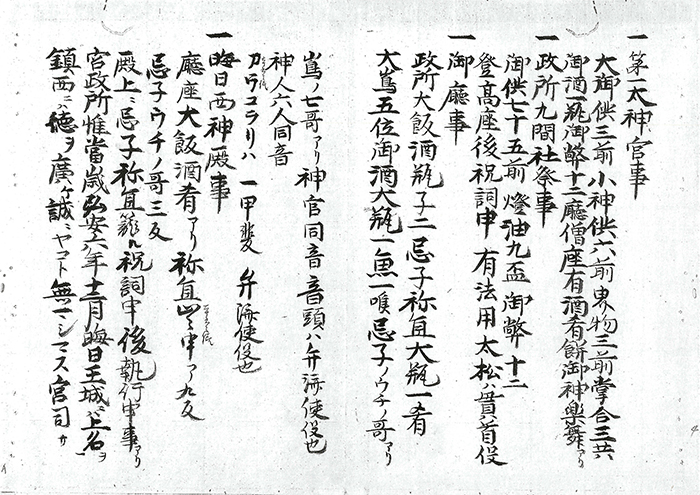 一 第一大神宮事
大御供三前 小神供六前 菓物三前掌合三共
御酒一瓶御幣十二廳僧座有酒肴餅御神樂舞アリ
一 政所九間社祭事
御供七十五前 燈油九盃 御幣十二
登高座後祝詞申 有法用太松ハ貫首役
一 御廳事
政所大飯酒瓶子二 忌子祢宜大瓶一肴
大嶌五位御酒大瓶一魚一喉忌子ノウチノ哥アリ
嶌ノ七哥アリ 神官同音 音頭ハ弁済使役也
神人六人同音
カウコラリハ 一甲斐 弁済使役也
一 晦日西神殿事
廳座大飯酒肴アリ 祢宜 申アリ九反
忌子ウチノ哥三反
殿上ニ忌子祢宜籠ル祝詞申後執行申事アリ
官政所惟當歳弘安六年十二月晦日王城ニハ上名ヲ
鎮西ニハ徳ヲ廣ケ誠ニヤマト無一ニシマス宮司カ